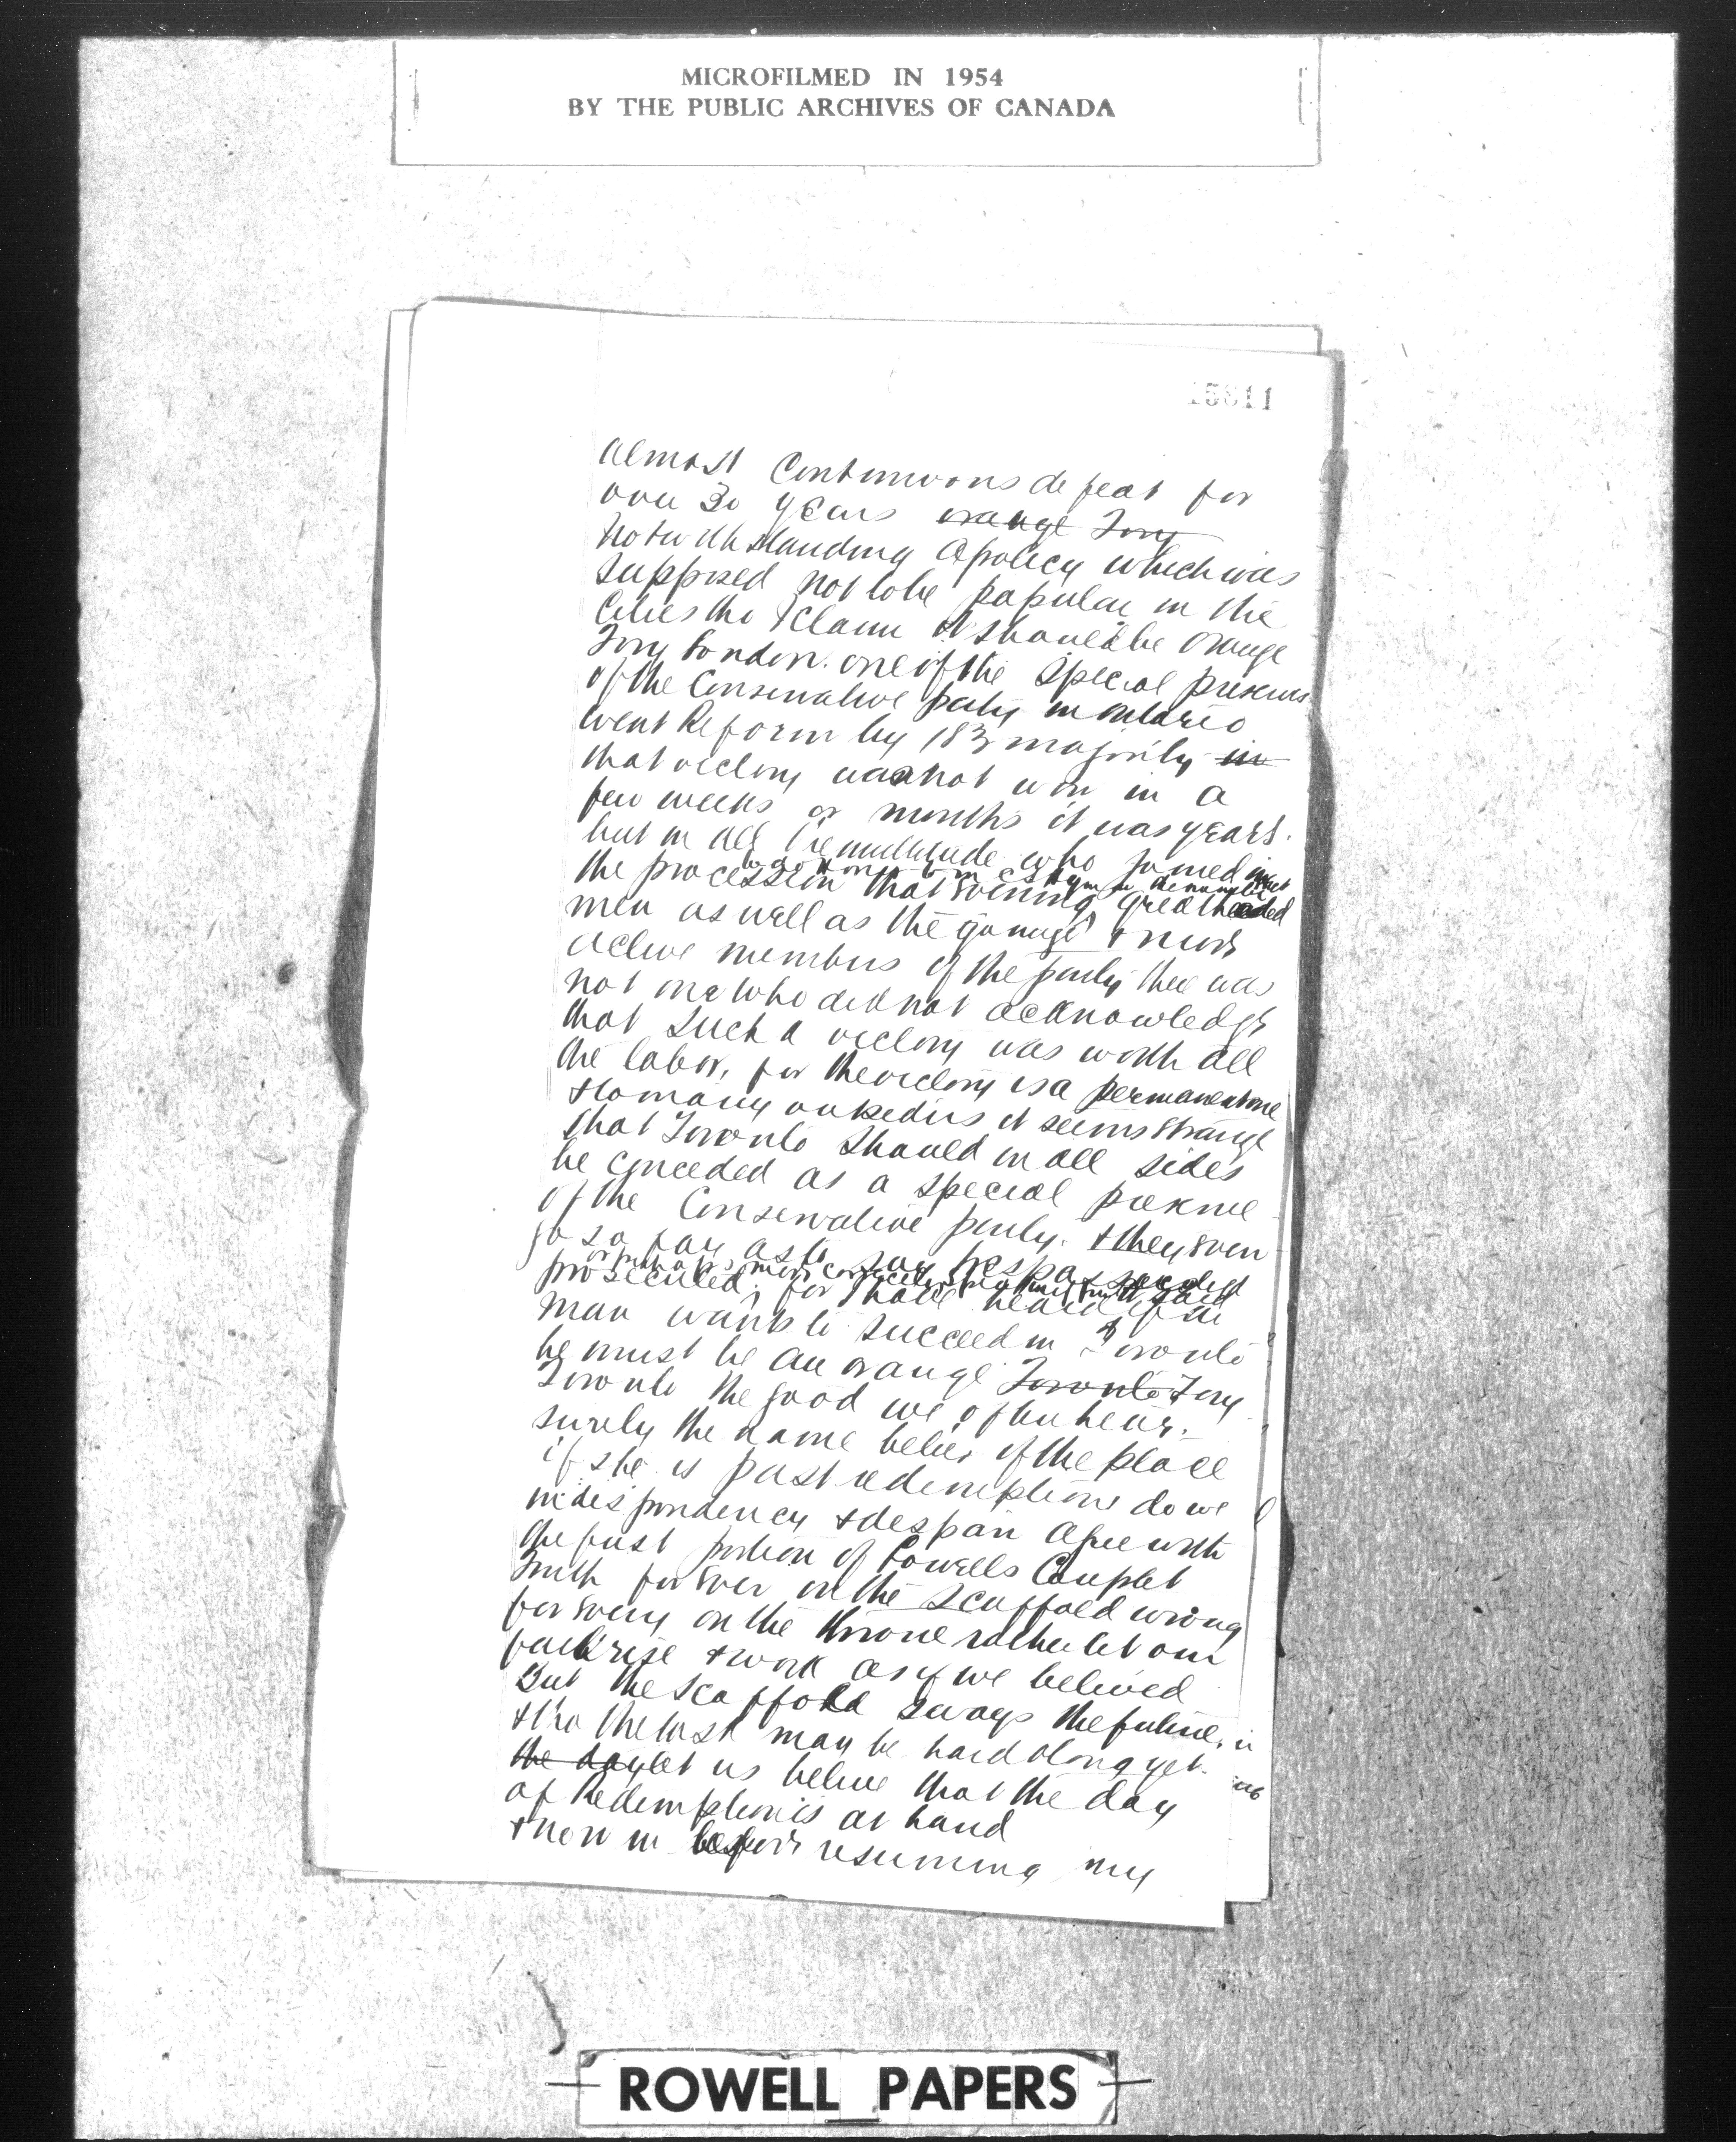 MICROFILMED IN 1954
BY THE PUBLIC ARCHIVES OF CANADA
almost continuous defeat for
over 30 years orange Tory
notwithstanding a policy which was
supposed not to be popular in the
cities tho I claim it should be orange
Tory London one of the special preserves
of the Conservative party in Ontario
went Reform by 183 majority in
that victory was not won in a
few weeks or months it was years.
but in all the multitude who joined in
the procession that evening
men as well as the younger & more
active members of the party there was
not one who did not acknowledge
that such a victory was worth all
the labor, for the victory is a permanent one
& to many outsiders it seems strange
that Toronto should on all sides
be conceded as a special preserve
of the Conservative party. & they even
go so far as to say trespassers
prosecuted, for I have heard if a
man wants to succeed in Toronto
he must be an orange Toronto Tory
Toronto the good we often hear.
surely the name belies of the place
if she is past redemption do we
in despondency & despair agree with
the first portion of Lowells Couplet
Truth forever on the scaffold wrong
forever on the throne rather let our
faith rise & work as if we believed
But the scaffold sways the future.
& tho the task may be hard & long yet
the day let us believe that the day
of Redemption is at hand
& now in before resuming my
ROWELL PAPERS